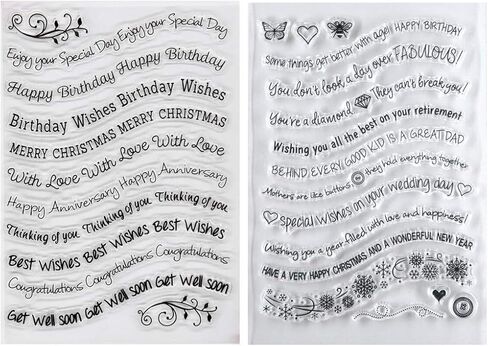 Enjoy your Special Day Enjoy your Special Day
Happy Birthday Happy Birthday
Birthday Wishes Birthday Wishes
MERRY CHRISTMAS MERRY CHRISTMAS
With Love With Love With Love
Happy Anniversary Happy Anniversary
Thinking of you Thinking of you Thinking of you
Best Wishes Best Wishes Best Wishes
Congratulations Congratulations Congratulations
Get Well soon Get Well soon Get Well soon
HAPPY BIRTHDAY
some things get better with age!
You don't look a day over FABULOUS!
You're a diamond They can't break you!
Wishing you all the best on your retirement
BEHIND EVERY GOOD KID IS A GREAT DAD
Mothers are like buttons they hold everything together
special wishes on your wedding day
Wishing you a year filled with love and happiness!
HAVE A VERY HAPPY CHRISTMAS AND A WONDERFUL NEW YEAR